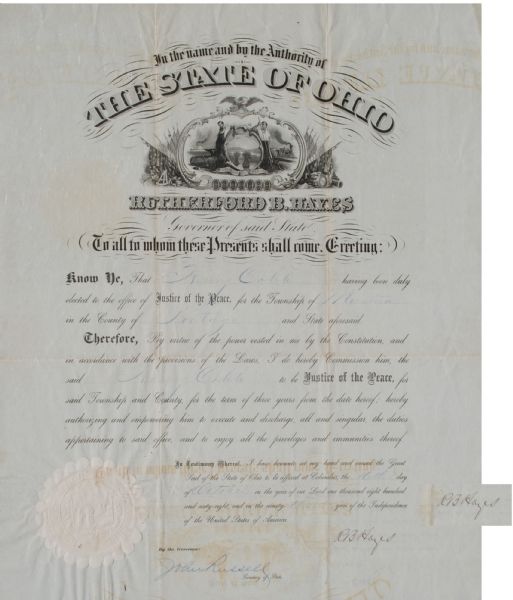 In the name and by the Authority of
THE STATE OF OHIO
RUTHERFORD B. HAYES
Governor of said State
(To all to whom these Presents shall come, Greeting:)
Know Ye, That Cobb having been duly
elected to the office of Justice of the Peace, for the Township of
in the County of Portage and State aforesaid
Therefore, By virtue of the power vested in me by the Constitution, and
in accordance with the provisions of the Laws, I do hereby Commission him, the
said Cobb to be Justice of the Peace, for
said Township and County, for the term of three years from the date hereof, hereby
authorizing and empowering him to execute and discharge, all and singular the duties
appertaining to said office, and to enjoy all the privileges and immunities thereof
In Testimony Whereof, I have hereunto set my hand and caused the Great
Seal of the State of Ohio to be affixed at Columbus, the day
of October in the year of our Lord one thousand eight hundred
and sixty-eight, and in the ninety year of the Independence
of the United States of America
RB Hayes
RB Hayes
By the Governor:
John Russell
Secretary of State